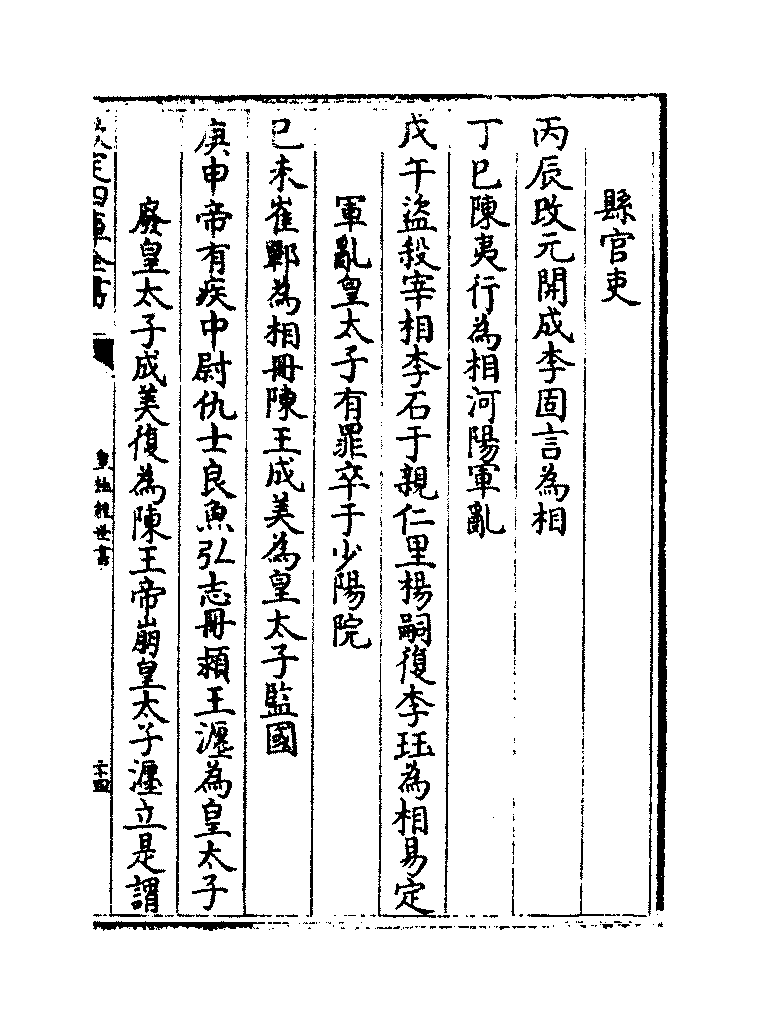 縣官吏
丙辰改元開成李固言為相
丁巳陳夷行為相河陽軍亂
戊午盜殺宰相李石于親仁里楊嗣復李珏為相易定
軍亂皇太子有罪卒于少陽院
己未崔鄲為相冊陳王成美為皇太子監國
庚申帝有疾中尉仇士良魚弘志冊潁王瀍為皇太子
廢皇太子成美復為陳王帝崩皇太子瀍立是謂
欽定四庫全書
皇極經世書
二十四